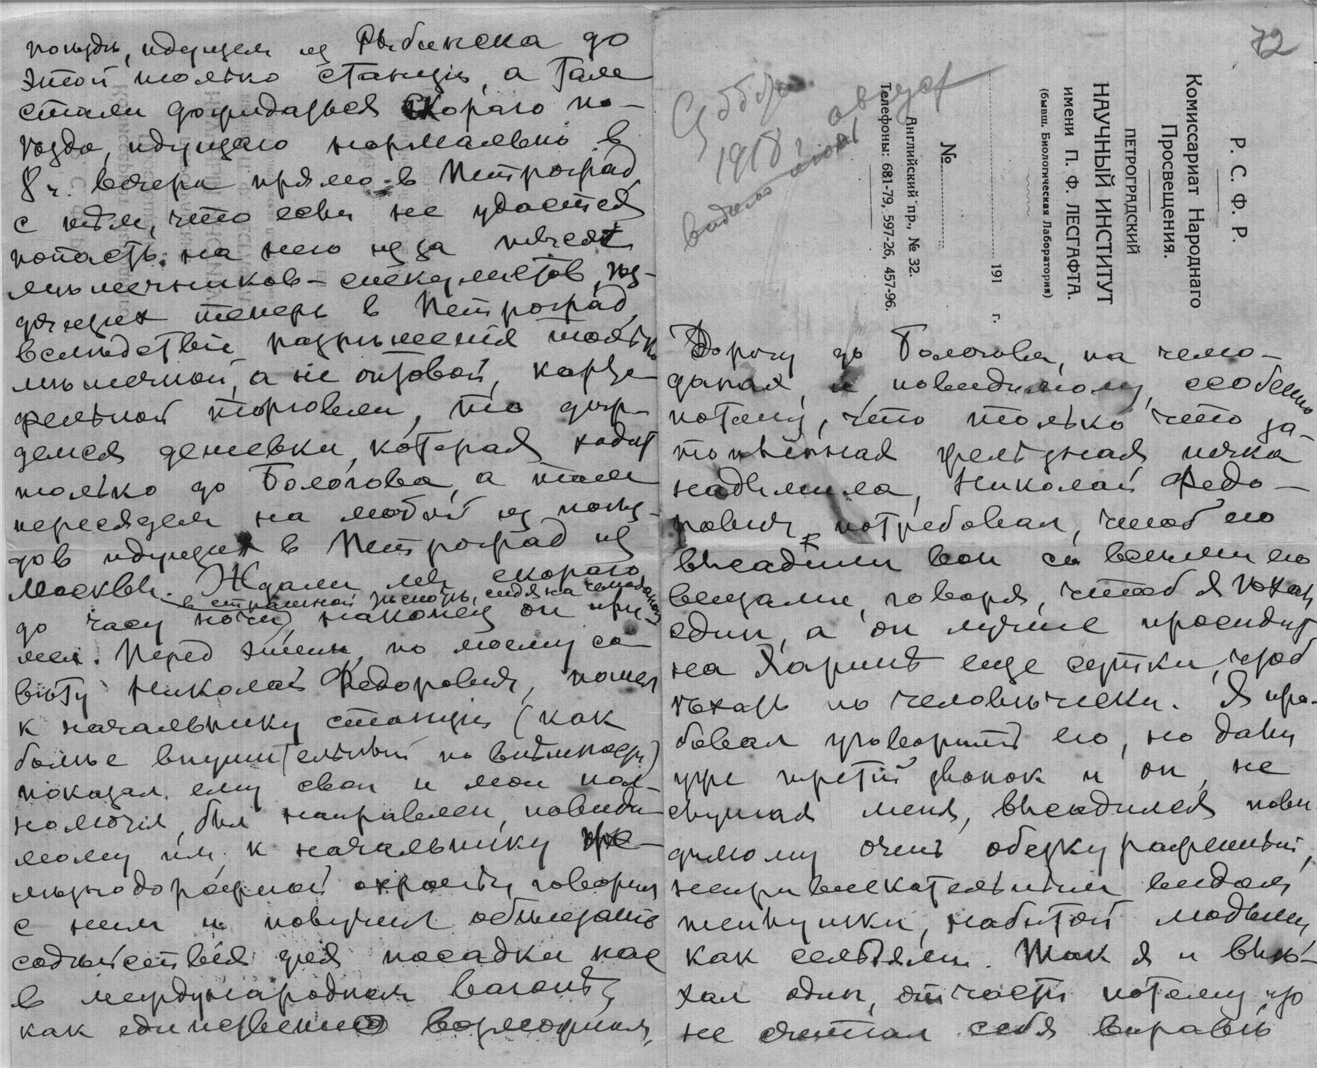 поѣзда, идущем из Рыбинска до
этой только станции, а там
стали дожидаться скораго по-
ѣзда, идущаго нормально в
8 ч. вечера прямо в Петроград
с тѣм, что если не удастся
попасть на него из за
мѣшечников-спекулянтов, ѣз-
дящих теперь в Петроград,
вслѣдствіи разрѣшенія только
мѣшечной, а не оптовой, карто-
фельной торговли, то дож-
демся дешевки, которая ходит
только до Бологова, а там
пересядем на любой из поѣз-
дов идущих в Петроград из
Москвы. Ждали мы скораго
в страшной темноте, сидя на чемоданах
до часу ночи, наконец он при-
шел. Перед этим, по моему со-
вѣту Николай Федорович, пошел
к начальнику станции (как
болѣе внушительный по внѣшности)
показал ему свои и мои пол-
номочія, был направлен, повиди-
мому им, к начальнику же-
лѣзнодорожной охраны, говорил
с ним и получил обѣщаніе
содѣйствія для посадки нас
в международном вагонѣ,
как единственно возможном,
72
Р. С. Ф. Р.
Комиссариат Народнаго
Просвещения.
ПЕТРОГРАДСКИЙ
НАУЧНЫЙ ИНСТИТУТ
имени П. Ф. ЛЕСГАФТА.
(бывш. Биологическая Лаборатория)
191 г.
№
Английский пр., № 32.
Телефоны: 681-79, 597-26, 457-96.
Суббота.
1918 г. август
Дорогу до Бологова, на чемо-
данах, и, повидимому, особенно
потому, что только что за-
топленная желѣзная печка
надымила, Николай Федо-
рович потребовал, чтоб его
высадили вон со всеми его
вещами, говоря, чтоб я ѣхал
один, а он лучше просидит
на Харинѣ еще сутки, чтоб
ѣхать по человѣчески. Я про-
бовал уговорить его, но дали
уже третій звонок и он, не
слушая меня, высадился пови-
димому очень обезкураженный,
непривлекательным видом
теплушки, набитой людьми,
как сельдями. Так я и выѣ-
хал один, отчасти потому что
не считал себя вправѣ